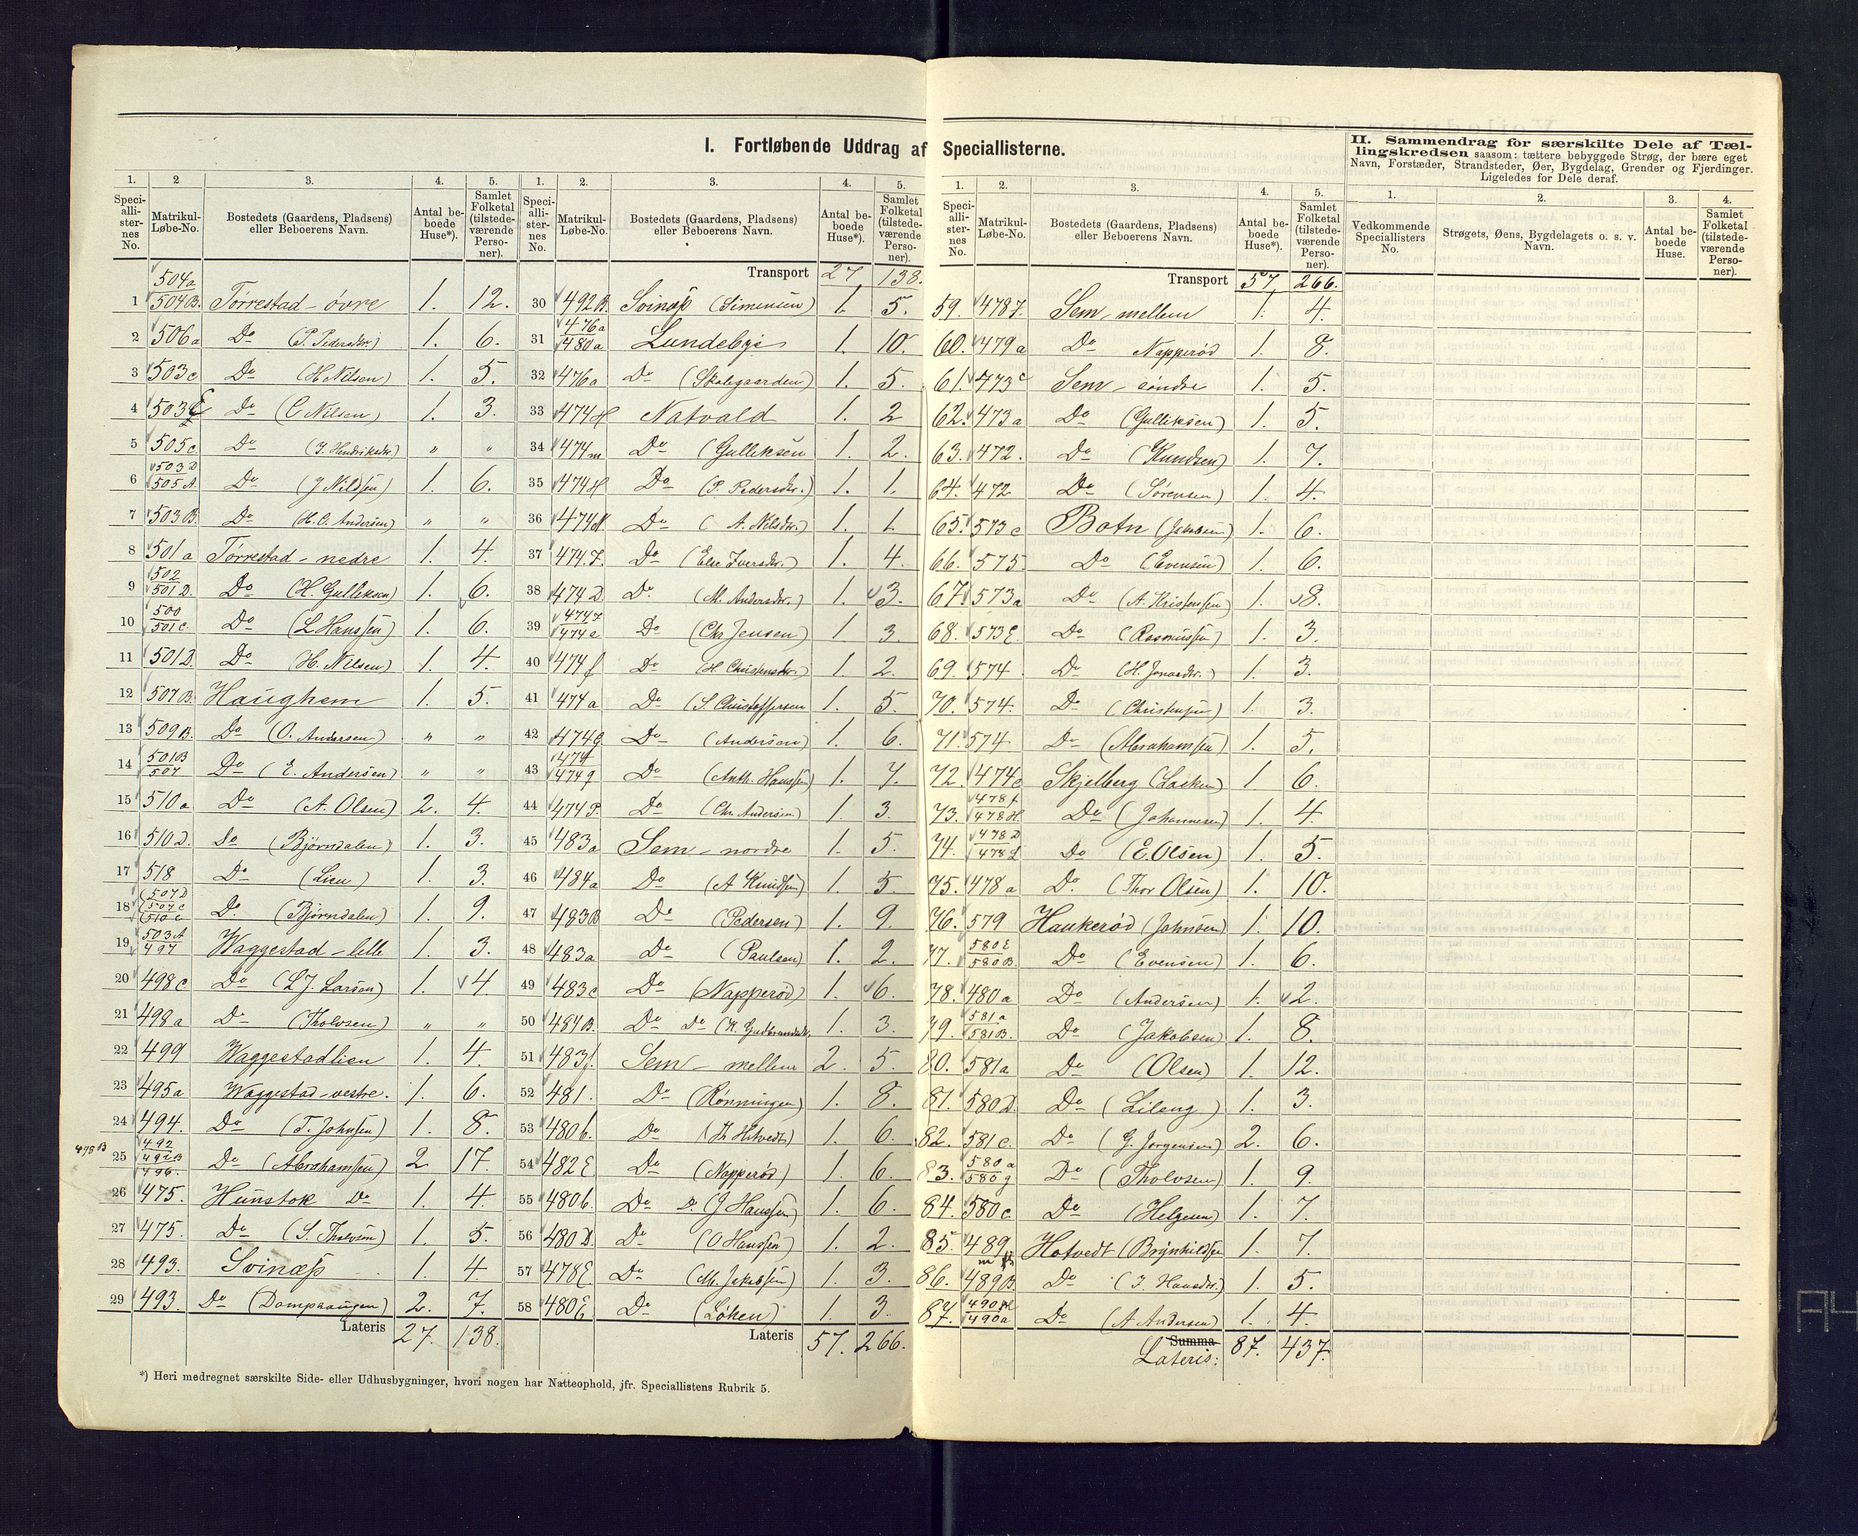 I. Fortløbende Uddrag af Speciallisterne.
1. 2 3. 4. 5.
Speciallisternes No. Matrikul-Løbe-No. Bostedets (Gaardens, Pladsens) eller Beboerens Navn. Antal beboede Huse*). Samlet Folketal (tilstedeværende Personer).
1 504a 504B. Tørrestad - øvre 1. 12.
2 506a Do (P. Pedersdr.) 1. 6.
3 503c Do (H Nilsen) 1. 5.
4 503E Do (C Nilsen) 1. 3.
5 505c Do (J. Hendriksdr.) " "
6 503D 505A. Do (J Nilssen) 1. 6.
7 503B. Do (H. O. Andersen) " "
8 501a Tørrestad - nedre 1. 4.
9 502 501D. Do (H. Gulliksen) 1. 6.
10 500 501c. Do (L Hanssen) 1. 6.
11 501D. Do (H. Nilsen) 1. 4.
12 507B. Haughem 1. 5.
13 509B. Do (O. Andersen) " "
14 501B 507 Do (E. Andersen) " "
15 510a Do (A. Olsen) 2. 4.
16 510D. Do (Bjørndalen) 1. 3.
17 518 Do (Lien) 1. 3.
18 507D 507c 510c Do (Bjørndalen) 1. 9.
19 503A 497 Waggestad - lille 1. 3.
20 498c Do (L J. Larsen) 1. 4.
21 498a Do (Tholvsen) " "
22 499 Waggestadlien 1. 4.
23 495a Waggestad - vestre. 1. 6.
24 494. Do (T. Johnsen) 1. 8.
498B 25 492 492B 496. Do (Abrahamsen) 2 17.
26 475. Hunstok Do 1. 4.
27 475. Do (S. Tholvsen) 1. 5.
28 493. Svinæs 1. 4.
29 493. Do (Dompaaugen) 2. 7.
Lateris 27. 138.
*) Heri medregnet særskilte Side- eller Udhusbygninger, hvori nogen har Natteophold, jfr. Speciallistens Rubrik 5.
1. 2. 3. 4. 5.
Speciallisternes No. Matrikul-Løbe-No. Bostedets (Gaardens, Pladsens) eller Beboerens Navn. Antal beboede Huse*). Samlet Folketal (tilstedeværende Personer).
Transport 27 138.
30 492B. Svinæs (Simensen) 1. 5.
31 476a 480a Lundeby 1. 10.
32 476a Do (Skolegaarden) 1. 5.
33 474H Natvald 1. 2
34 474m Do (Gulliksen 1. 2.
35 474H Do (P. Pedersdr.) 1. 1.
36 474N Do (A. Nilsdr. 1. 1
37 474.F. Do (Else Iversdr.) 1. 4.
38 474D Do (M. Andersdr.) 1. 3.
39 474F 474e Do (Chr Jensen) 1. 3.
40 474f Do (H Christensdr.) 1. 2.
41 474a Do (S Christoffersen 1. 5.
42 474G. Do (Andersen) 1. 6.
43 474 474g Do (Anth. Hanssen) 1. 7.
44 474P. Do (Chr Andersen) 1. 3.
45 483a Sem - nordre 1. 5.
46 484a Do (A Knudsen) 1. 5.
47 483B Do (Pedersen) 1. 9.
48 483a Do (Paulsen) 1. 2.
49 483c Do (Napperød) 1. 6.
50 484B. Do Do (K. Gudbrandsdr. 1. 3.
51 483f. Sem - mellem 2. 5.
52 481. Do (Rønningen) 1. 8.
53 480b. Do (Th Hotvedt) 1. 6.
54 482E Do (Napperød) 1. 6.
55 480b. Do D. (J Hanssen) 1. 6.
56 480D. Do (O Hanssen) 1. 2.
57 478E. Do (Mth. Jakobsen) 1. 3.
58 480E. Do (Løken) 1. 3.
Lateris 57. 266.
1. 2. 3. 4. 5.
Speciallisternes No. Matrikul-Løbe-No. Bostedets (Gaardens, Pladsens) eller Beboerens Navn. Antal beboede Huse*). Samlet Folketal (tilstedeværende Personer).
Transport 57 266.
59. 478F. Sem - mellem 1. 4.
60. 479a Do Napperød 1. 8.
61. 473c Sem - søndre 1. 5.
62. 473a Do (Gulliksen) 1. 5.
63. 472. Do (Knudsen) 1. 7.
64. 472 Do (Sørensen) 1. 4.
65. 573c Botn (Jakobsen) 1. 6.
66. 575. Do (Evensen) 1. 6.
67. 573a Do (A. Kristensen) 1. 8.
68. 573E. Do (Rasmussen) 1. 3.
69. 574. Do (H. Jonasdr.) 1. 3.
70. 574. Do (Christensen) 1. 3.
71. 574 Do (Abrahamsen) 1. 5.
72. 474c Skjelberg (Larsen) 1. 6.
73. 478f 478H Do (Johannesen) 1. 4.
74. 478D 478L Do (E. Olsen) 1. 5.
75. 478a Do. (Thor Olsen) 1. 10.
76. 579 Haukerød (Johnsen) 1. 10.
77. 580E 580B. Do (Evensen) 1. 6.
78. 480a Do (Andersen) 1. 2.
79. 581a 581B. Do (Jakobsen) 1. 8.
80. 581a Do (Olsen) 1. 12.
81. 580D. Do (Lileng) 1. 3.
82. 581c. Do (G. Jørgensen) 2. 6.
83. 580a 580g Do (Tholvsen) 1. 9.
84. 580c Do (Helgesen) 1. 7.
85. 489 Hotvedt (Brynhildsen 1. 7.
86. 489B. Do (J. Hansdr.) 1. 5.
87. 490H 490a Do (A Andersen) 1. 4.
Summa
Lateris: 87. 437.
II. Sammendrag for særskilte Dele af Tællingskredsen saasom: tættere bebyggede Strøg, der bære eget
Navn, Forstæder, Strandsteder, Øer, Bygdelag, Grender og Fjerdinger.
Ligeledes for Dele deraf.
1. 2. 3. 4.
Vedkommende Speciallisters No. Strøgets, Øens, Bygdelagets o. s. v. Navn. Antal beboede Huse. Samlet Folketal (tilstedeværende Personer).